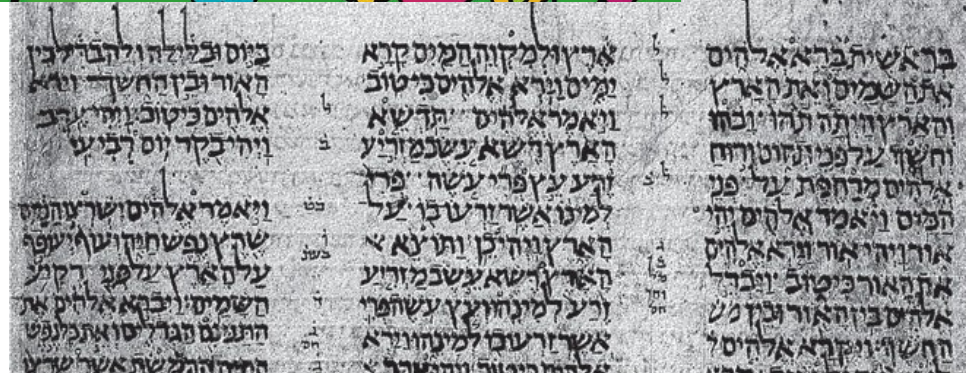 בראשית ברא אלהים
את השמים ואת הארץ
והארץ היתה תהו ובהו
וחשך על פני תהום ורוח
אלהים מרחפת על פני
המים ויאמר אלהים יהי
אור ויהי אור וירא אלהים
את האור כי טוב ויבדל
אלהים בין האור ובין
החשך ויקרא אלהים ל
ארץ ולמקוה המים קרא
ימים וירא אלהים כי טוב
ויאמר אלהים תדשא
הארץ דשא עשב מזריע
זרע עץ פרי עשה פרי
למינו אשר זרעו בו על
הארץ ויהי כן ותוצא
הארץ דשא עשב מזריע
זרע למינהו ועץ עשה פרי
אשר זרעו בו למינהו וירא
ביום ובלילה ולהבדיל בין
האור ובין החשך וירא
אלהים כי טוב ויהי ערב
ויהי בקר יום רביעי
ויאמר אלהים ישרצו המים
שרץ נפש חיה ועוף יעופף
על הארץ על פני רקיע
השמים ויברא אלהים את
התנינם הגדלים ואת כל נפש